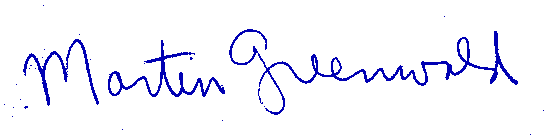 Martin Greenwald